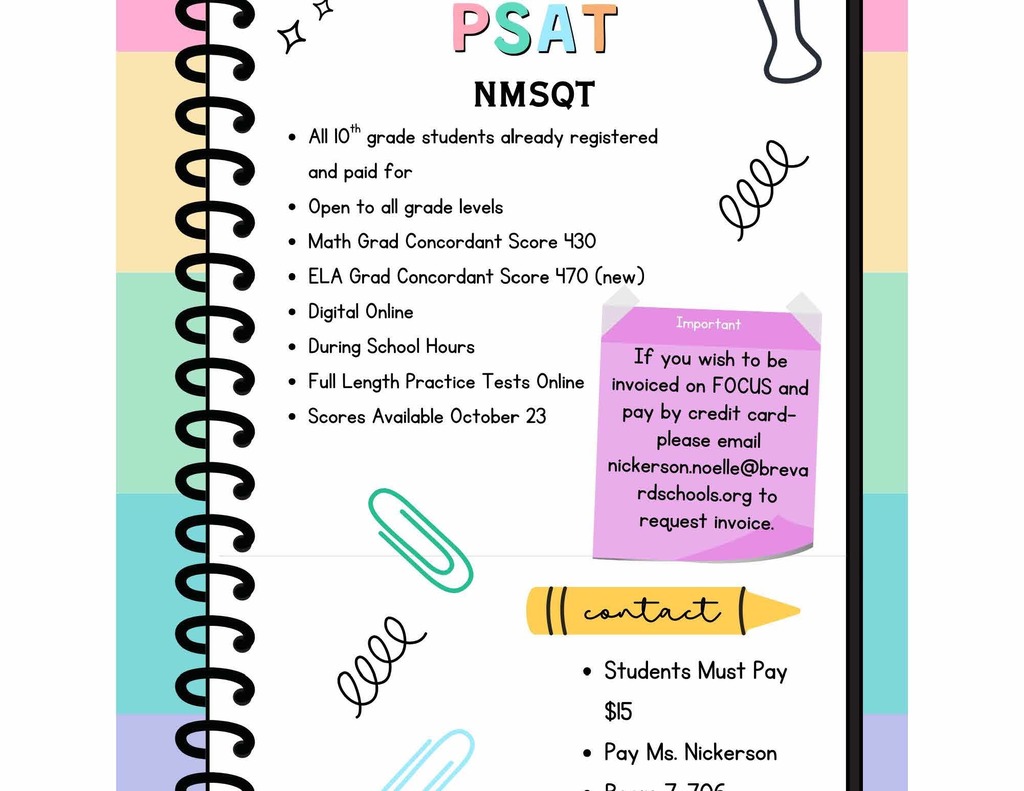 PSAT
NMSQT
• All 10th grade students already registered
and paid for
• Open to all grade levels
• Math Grad Concordant Score 430
• ELA Grad Concordant Score 470 (new)
• Digital Online
• During School Hours
• Full Length Practice Tests Online
• Scores Available October 23
Important
If you wish to be
invoiced on FOCUS and
pay by credit card-
please email
nickerson.noelle@breva
rdschools.org to
request invoice.
contact
• Students Must Pay
$15
• Pay Ms. Nickerson
• Room 7-706